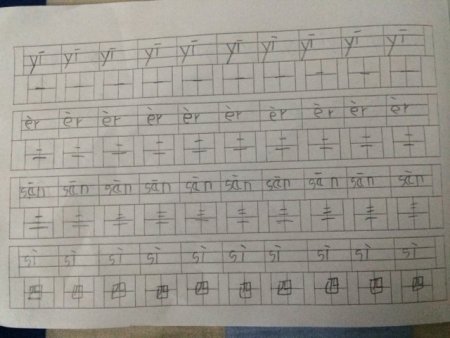 yī yī yī yī yī yī yī yī yī yī
一 一 一 一 一 一 一 一 一 一
èr èr èr èr èr èr èr èr èr èr
二 二 二 二 二 二 二 二 二 二
sān sān sān sān sān sān sān sān sān sān
三 三 三 三 三 三 三 三 三 三
sì sì sì sì sì sì sì sì sì sì
四 四 四 四 四 四 四 四 四 四